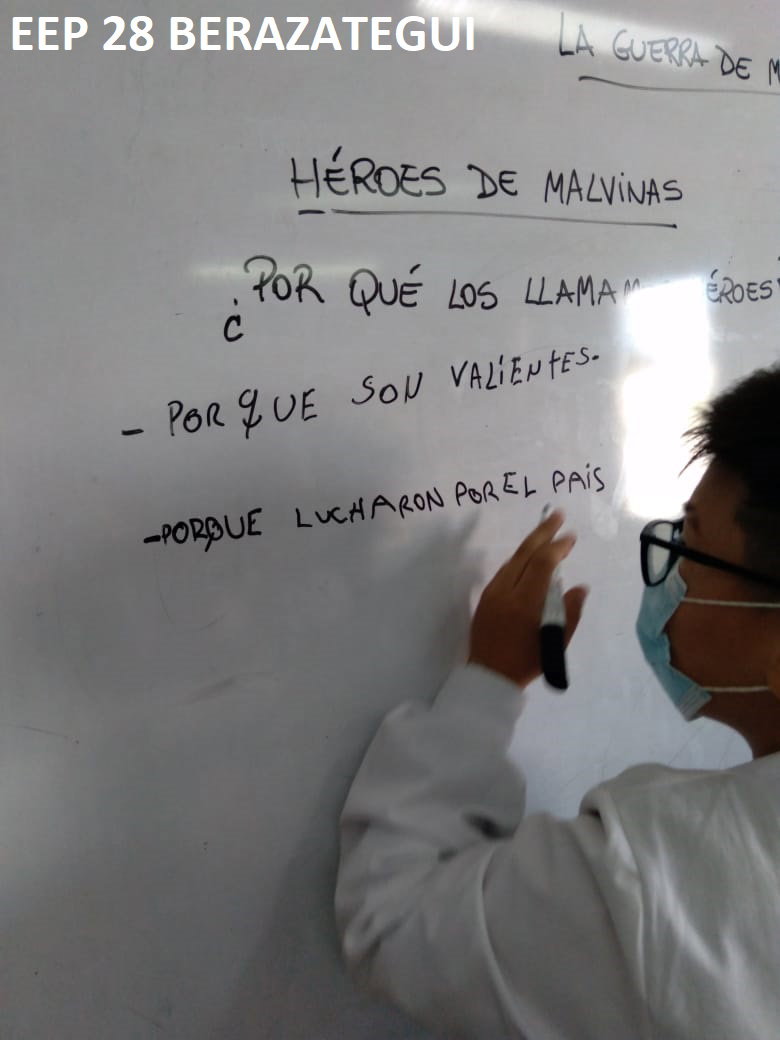 EEP 28 BERAZATEGUI
LA GUERRA DE M
HÉROES DE MALVINAS
¿POR QUÉ LOS LLAMAM ÉROES
- PORQUE SON VALIENTES.
-PORQUE LUCHARON POR EL PAIS